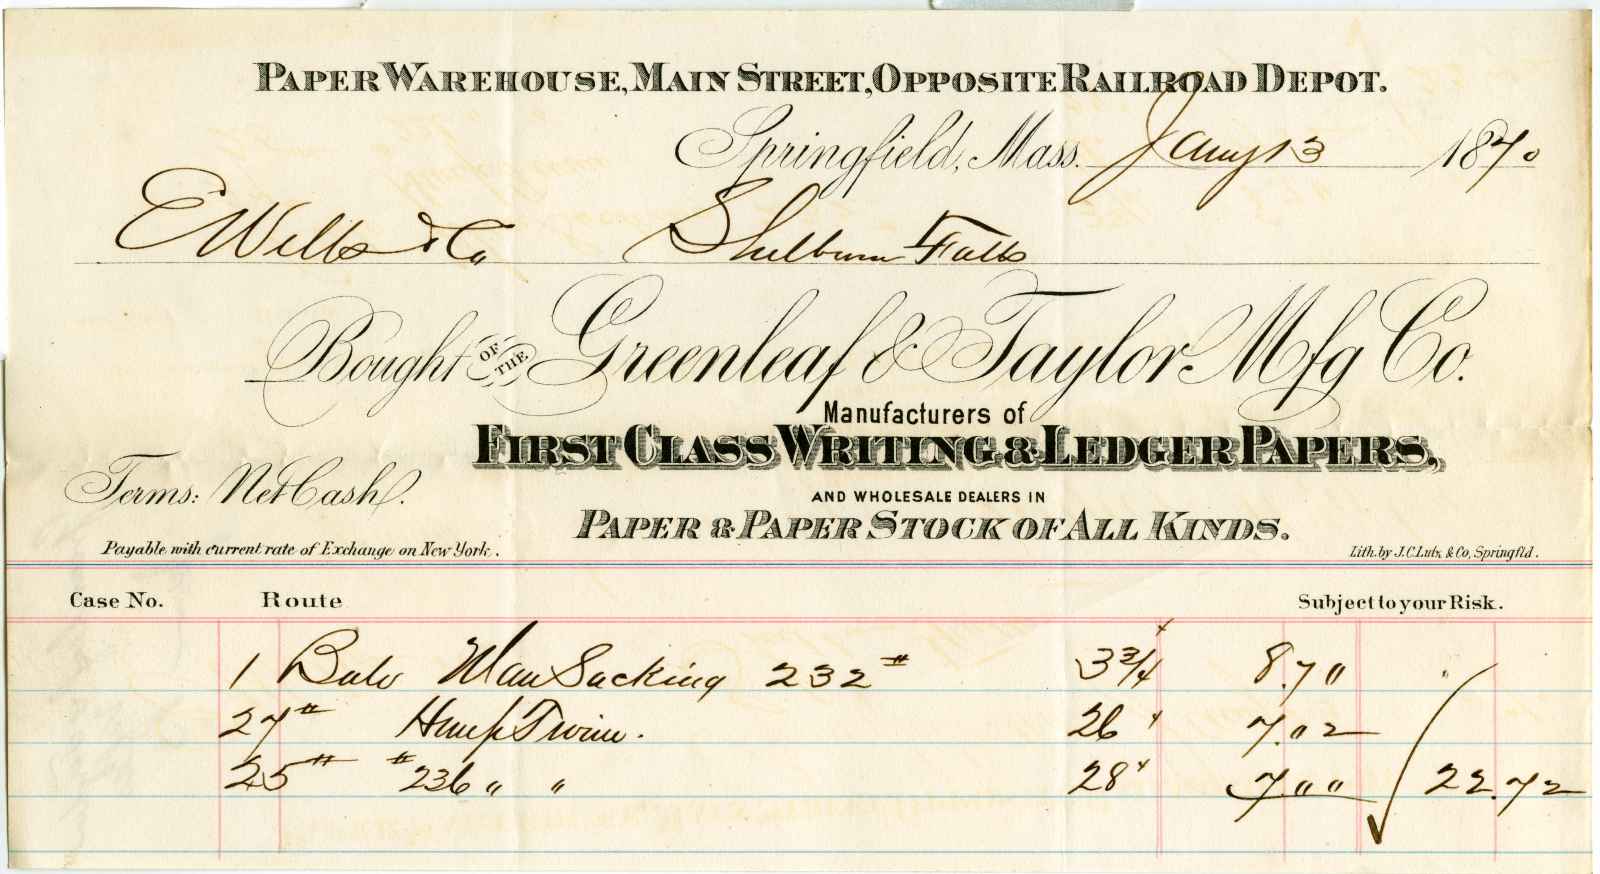 PAPER WAREHOUSE, MAIN STREET, OPPOSITE RAILROAD DEPOT.
Springfield, Mass. Jany 13 1870
E Wells & Co Shelburn Falls
Bought OF THE Greenleaf & Taylor Mfg Co.
Manufacturers of
FIRST CLASS WRITING & LEDGER PAPERS,
Terms: Net Cash.
AND WHOLESALE DEALERS IN
PAPER & PAPER STOCK OF ALL KINDS.
Payable with current rate of Exchange on New York.
Lith. by J.C. Lutz & Co, Springfld.
Case No. Route Subject to your Risk.
1 Bale Man Sacking 232 # 3 3/4 8.70
27 # Hemp Twine. 26 7.02
25 # # 236 " " 28 7.00 22.72